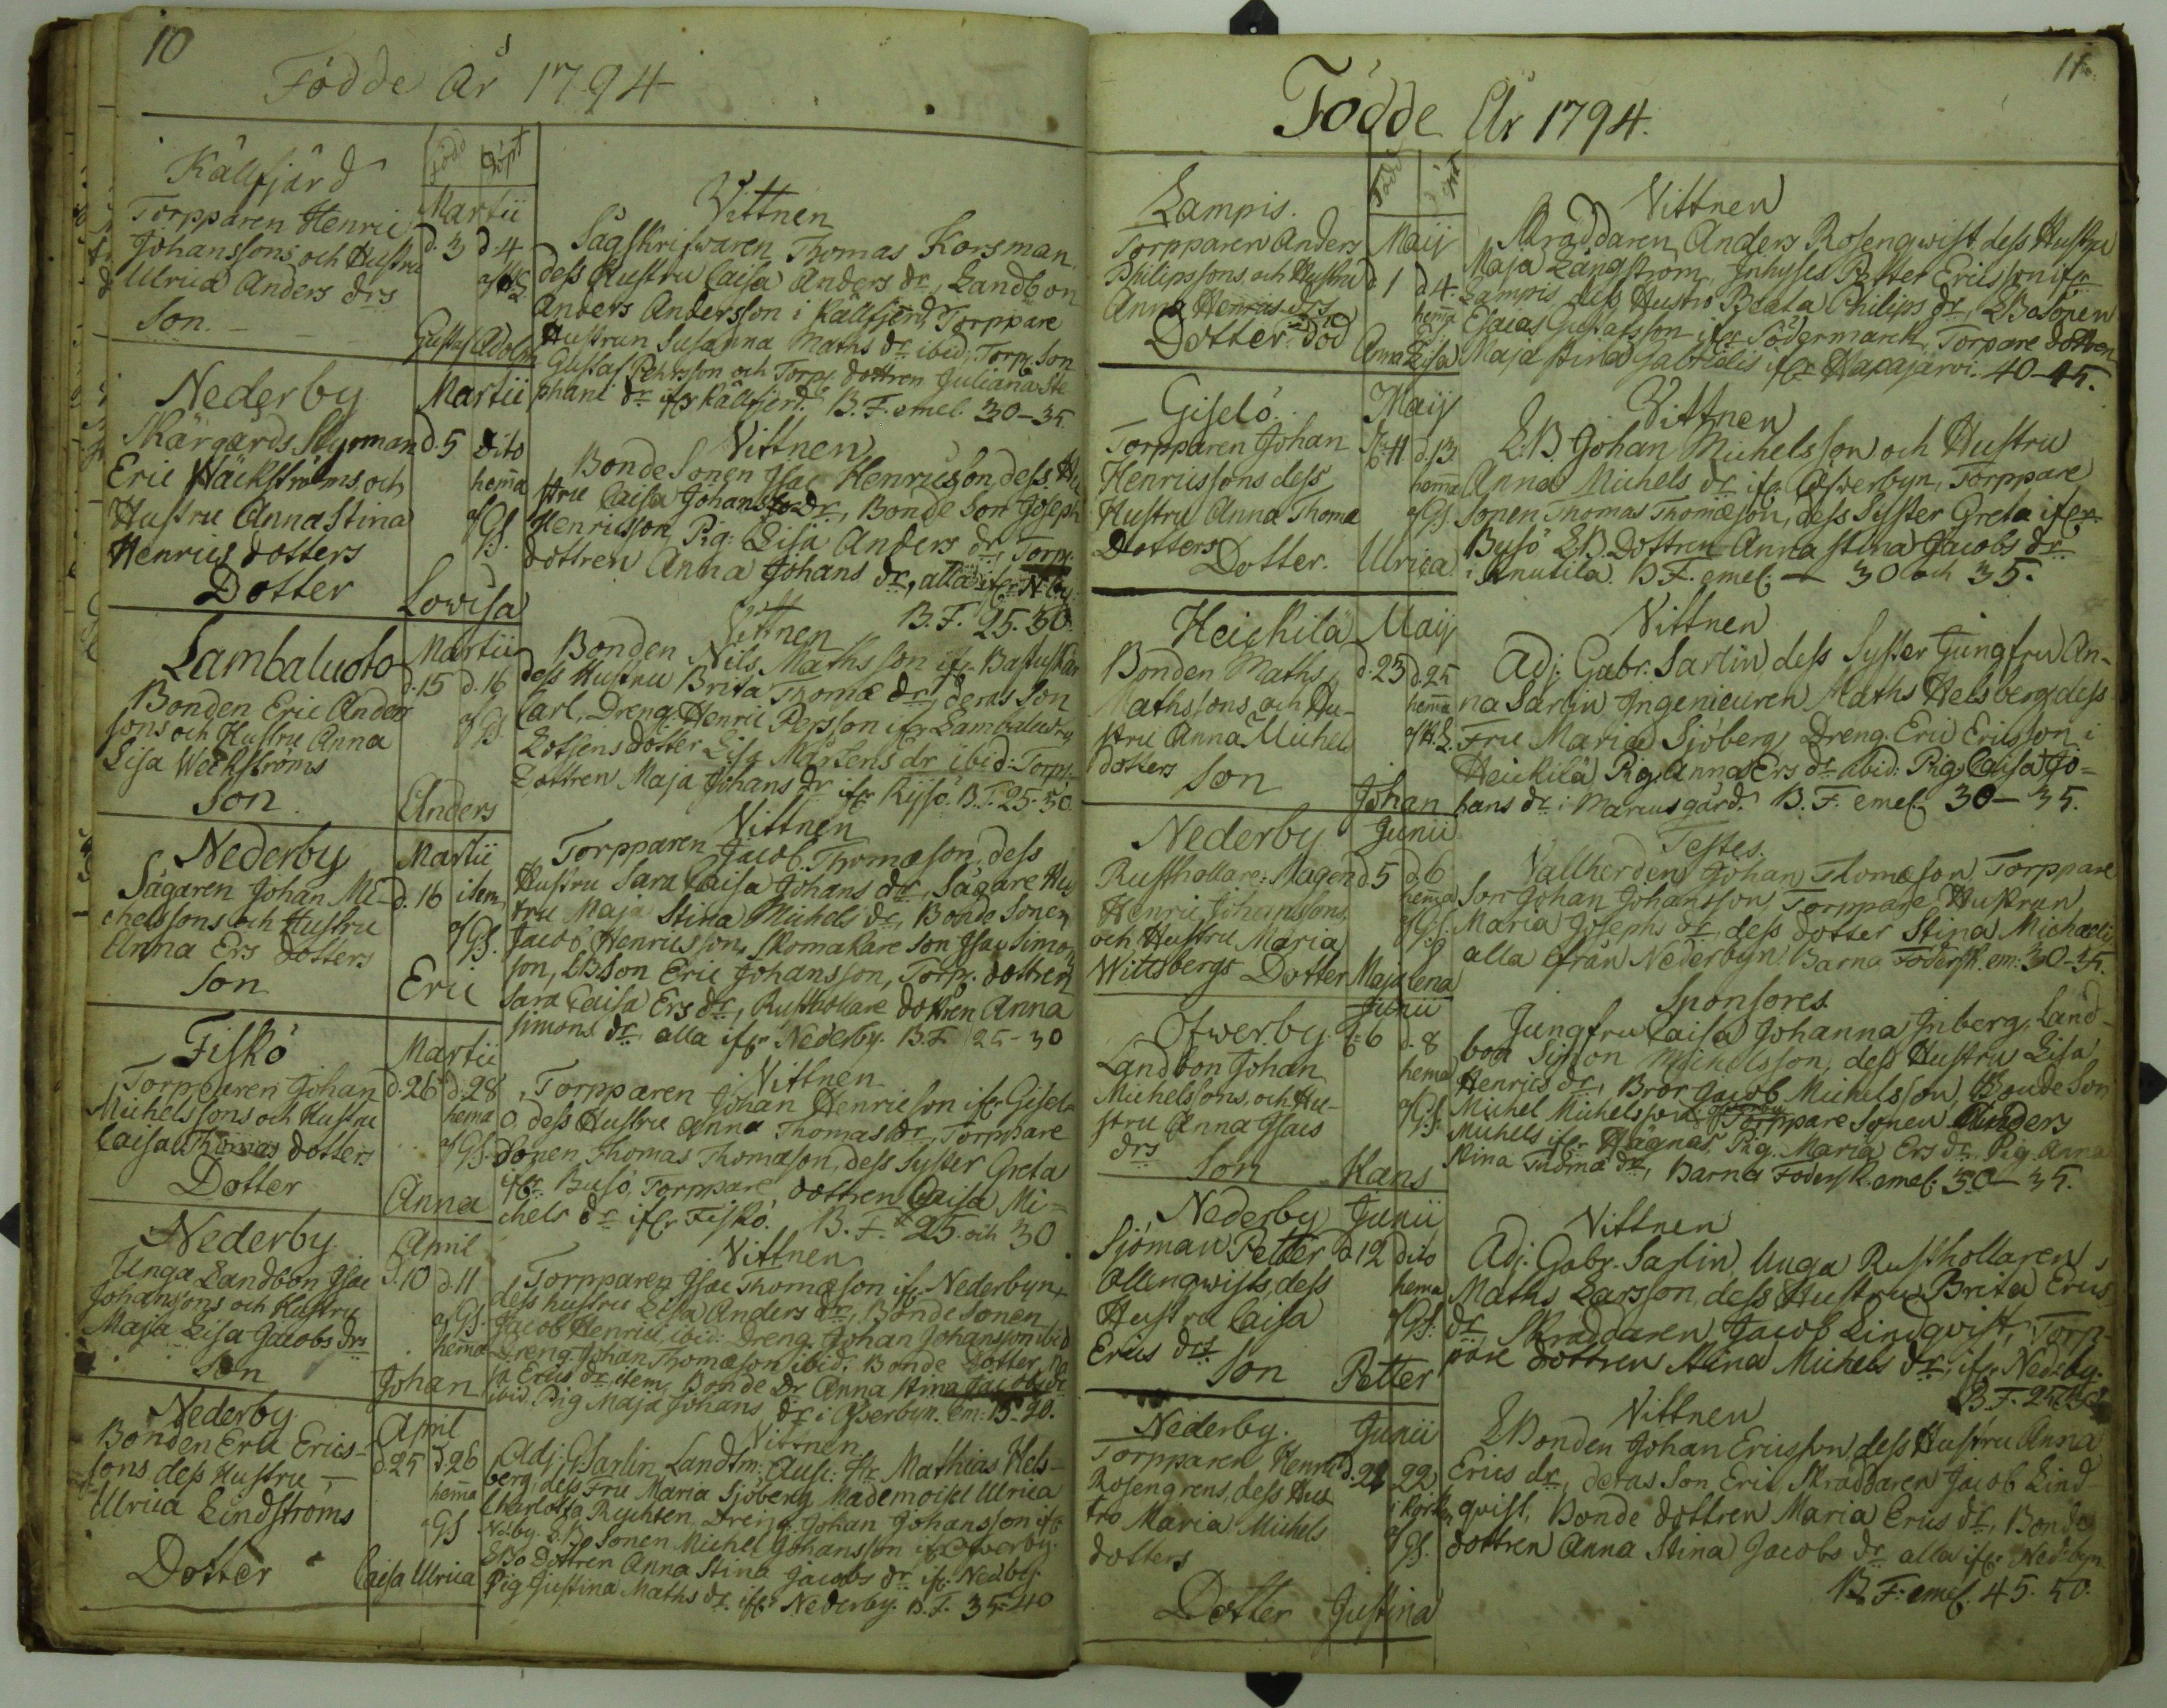 10
Födde år 1794
Källfjärd
född
döpt
Torpparen Henric
Johanssons och Hustru
Ulrica Anders drs
Son.
Martii
d. 3 d. 4
af HL
Gustaf Adolm
Vittnen
Sågskrifwaren Thomas Korsman,
dess Hustru Caisa Anders dr, Landbon
Anders Andersson i Källfjerd, Torppare
Hustrun Susanna Maths dr ibid, Torp. Son
Gustaf Pehrsson och Torp. dottren Juliana Ste
phani dr ifr Källfjerd. B. F. emel. 30-35.
Nederby
Skärgårds Styrman
Eric Häckströms och
Hustru Anna Stina
Henrics dotters
Dotter
Martii
d. 5 dito
hema
af GS.
Lowisa
Vittnen
Bonde Sonen Isac Henricsson, dess Hu
stru Caisa Johans dr, Bonde Son Joseph
Henricsson, Pig: Lisa Anders dr, Torp.
dottren Anna Johans dr, alla ifr N:by.
B. F. 25. 30.
Lambaluoto
Bonden Eric Anders
sons och Hustru Anna
Lisa Weckströms
Son.
Martii
d. 15 d. 16
af GS
Anders
Vittnen
Bonden Nils Mathsson ifr Bastuskär
dess Hustru Brita Thomæ dr, deras Son
Carl, Dreng. Henric Persson ifr Lambaluoto,
Lotsens dotter Lisa Mårtens dr ibid: Torp.
Dottren Maja Johans dr ifr Ryssö. B. F. 25-30.
Nederby
Sågaren Johan Mi-
chelssons och Hustru
Anna Ers dotters
Son
Martii
d. 16 item
af GS.
Eric
Vittnen
Torpparen Jacob Thomæson, dess
Hustru Sara Caisa Johans dr, Sågare Hu
stru Maja Stina Michels dr, Bonde Sonen
Jacob Henricsson, Skomakare Son Isac Simon
son, LB Son Eric Johansson, Torp. dottren
Sara Caisa Ers dr, Rusthollare dottren Anna
Simons dr alla ifr Nederby. B. F. 25-30
Fiskö
Torpparen Johan
Michelssons och Hustru
Caisa Thomas dotters
Dotter
Martii
d. 26 d. 28
hema
af GS.
Anna
Vittnen
Torpparen Johan Henricson ifr Gisel-
ö, dess Hustru Anna Thomas dr, Torppare
Sonen Thomas Thomæson, dess Syster Greta
ifr Busö, Torppare dottren Caisa Mi-
chels dr ifr Fiskö. B. F. 25. och 30
Nederby
Unga Landbon Isac
Johanssons och Hustru
Maja Lisa Jacobs drs
Son
April
d. 10 d. 11
af GS.
hema
Johan
Vittnen
Torpparen Isac Thomæson ifr Nederbyn,
dess hustru Lisa Anders dr, Bonde Sonen
Jacob Henrici ibid: Dreng. Johan Johansson ibid
Dreng. Johan Thomæson ibid: Bonde Dotter Ma
ja Erics dr item, Bonde Dr Anna Stina Jacobs dr
ibid. Pig Maja Johans dr i Öfwerbyn. em: 15-20.
Nederby
Bonden Eric Erics-
sons dess Hustru
Ulrica Lindströms
Dotter
April
d. 25 d. 26
hema
GS
Caisa Ulrica
Vittnen
Adj: G: Sarlin, Landtm: Ausc: Hr Mathias Hels-
berg, dess Fru Maria Sjöberg, Mademoisel Ulrica
Charlotta Dreng. Johan Johansson ifr
N:by. LB Sonen Michel Johansson ifr Öfwerby.
LBo Dottren Anna Stina Jacobs dr ifr Nedby.
Pig Justina Maths dr. ifr Nederby. B. F. 35-40
11.
Födde År 1794.
Lampis.
Torpparen Anders
Philipssons och Hustru
Anna Henrics drs
Dotter. död
Maij
d 1 d 4.
hema
Anna Lisa
Vittnen
Skraddaren Anders Rosenqwist, dess Hustru
Maja Långström, Inhyses Petter Ericsson ifr
Lampis, dess Hustru Beata Philips dr, LBo Sonen
Esaias Gustafsson ifr Södermarck, Torpare dottren
Maja Stina Gabrielis ifr Hapajärvi. 40-45.
Giselö.
Torpparen Johan
Henricssons dess
Hustru Anna Thomæ
Dotters
Dotter.
Maij
11 d. 13.
hema
af GS
Ulrica
Vittnen
LB. Johan Michelsson och Hustru
Anna Michels dr ifr Öfwerbyn, Torppare
Sonen Thomas Thomæson, dess Syster Greta ifr
Busö LB Dottren Anna Stina Jacobs dr
i Anutila. B. F. emel: — 30 och 35.
Heickilä
Bonden Maths
Mathssons och Hu-
stru Anna Michels
dotters
Son
Maij
d. 23 d. 25
hema
af H.L.
Johan
Vittnen
Adj: Gabr. Sarlin, dess Syster Jungfru An-
na Sarlin Ingenieuren Maths Helsberg, dess
Fru Maria Sjöberg, Dreng. Eric Ericsson i
Heickilä, Pig. Anna Ers dr ibid: Pig Caisa Jo-
hans dr i Marcusgård. B. F. emel. 30-35.
Nederby
Rusthollare: Magen
Henric Johanssons
och Hustru Maria
Wittsbergs Dotter
Junii
d 5 d 6
hema
af GS.
Maja Lena
Testes.
Vallherden Johan Thomæson, Torppare
Son Johan Johansson, Torppare Hustrun
Maria Josephs dr, dess dotter Stina Michaeli
alla ifrån Nederbyn. Barna Födersk. em: 30-35.
Öfwerby
Landbon Johan
Michelssons, och Hu-
stru Anna Isacs
drs
Son
Junii
6 d. 8
hema
af GS.
Hans
Sponsores
Jungfru Caisa Johanna Inberg, Land-
bon Simon Michelsson, dess Hustru Lisa
Henrics dr, Bror Jacob Michelsson, Bonde Son
Michel Michelsson öfwerby Torppare Sonen Anders
Michels ifr Hägnäs, Pig. Maria Ers dr, Pig Anna
Stina Thomæ dr, Barna Födersk. emel. 30-35.
Nederby
Sjöman Petter
Ollenqwists, dess
Hustru Caisa
Erics drs
Son
Junii
d 12 dito
hema
af GS.
Petter
Vittnen
Adj: Gabr. Sarlin, Unga Rusthollaren
Maths Larsson, dess Hustru Brita Erics
dr, Skraddaren Jacob Lindqvist, Torp-
pare dottren Stina Michels dr, ifr Nederby.
B. F. 25
Nederby.
Torpparen Henric
Rosengrens, dess Hus
tro Maria Michels
dotters
Dotter
Junii
d. 21 22
i Kyrkan
af GS.
Justina
Vittnen
LBonden Johan Ericsson, dess Hustru Anna
Erics dr, deras Son Eric, Skraddaren Jacob Lind-
qvist, Bonde dottren Maria Erics dr, Bonde
dottren Anna Stina Jacobs dr alla ifr Nederbyn
B. F: emel. 45. 50.